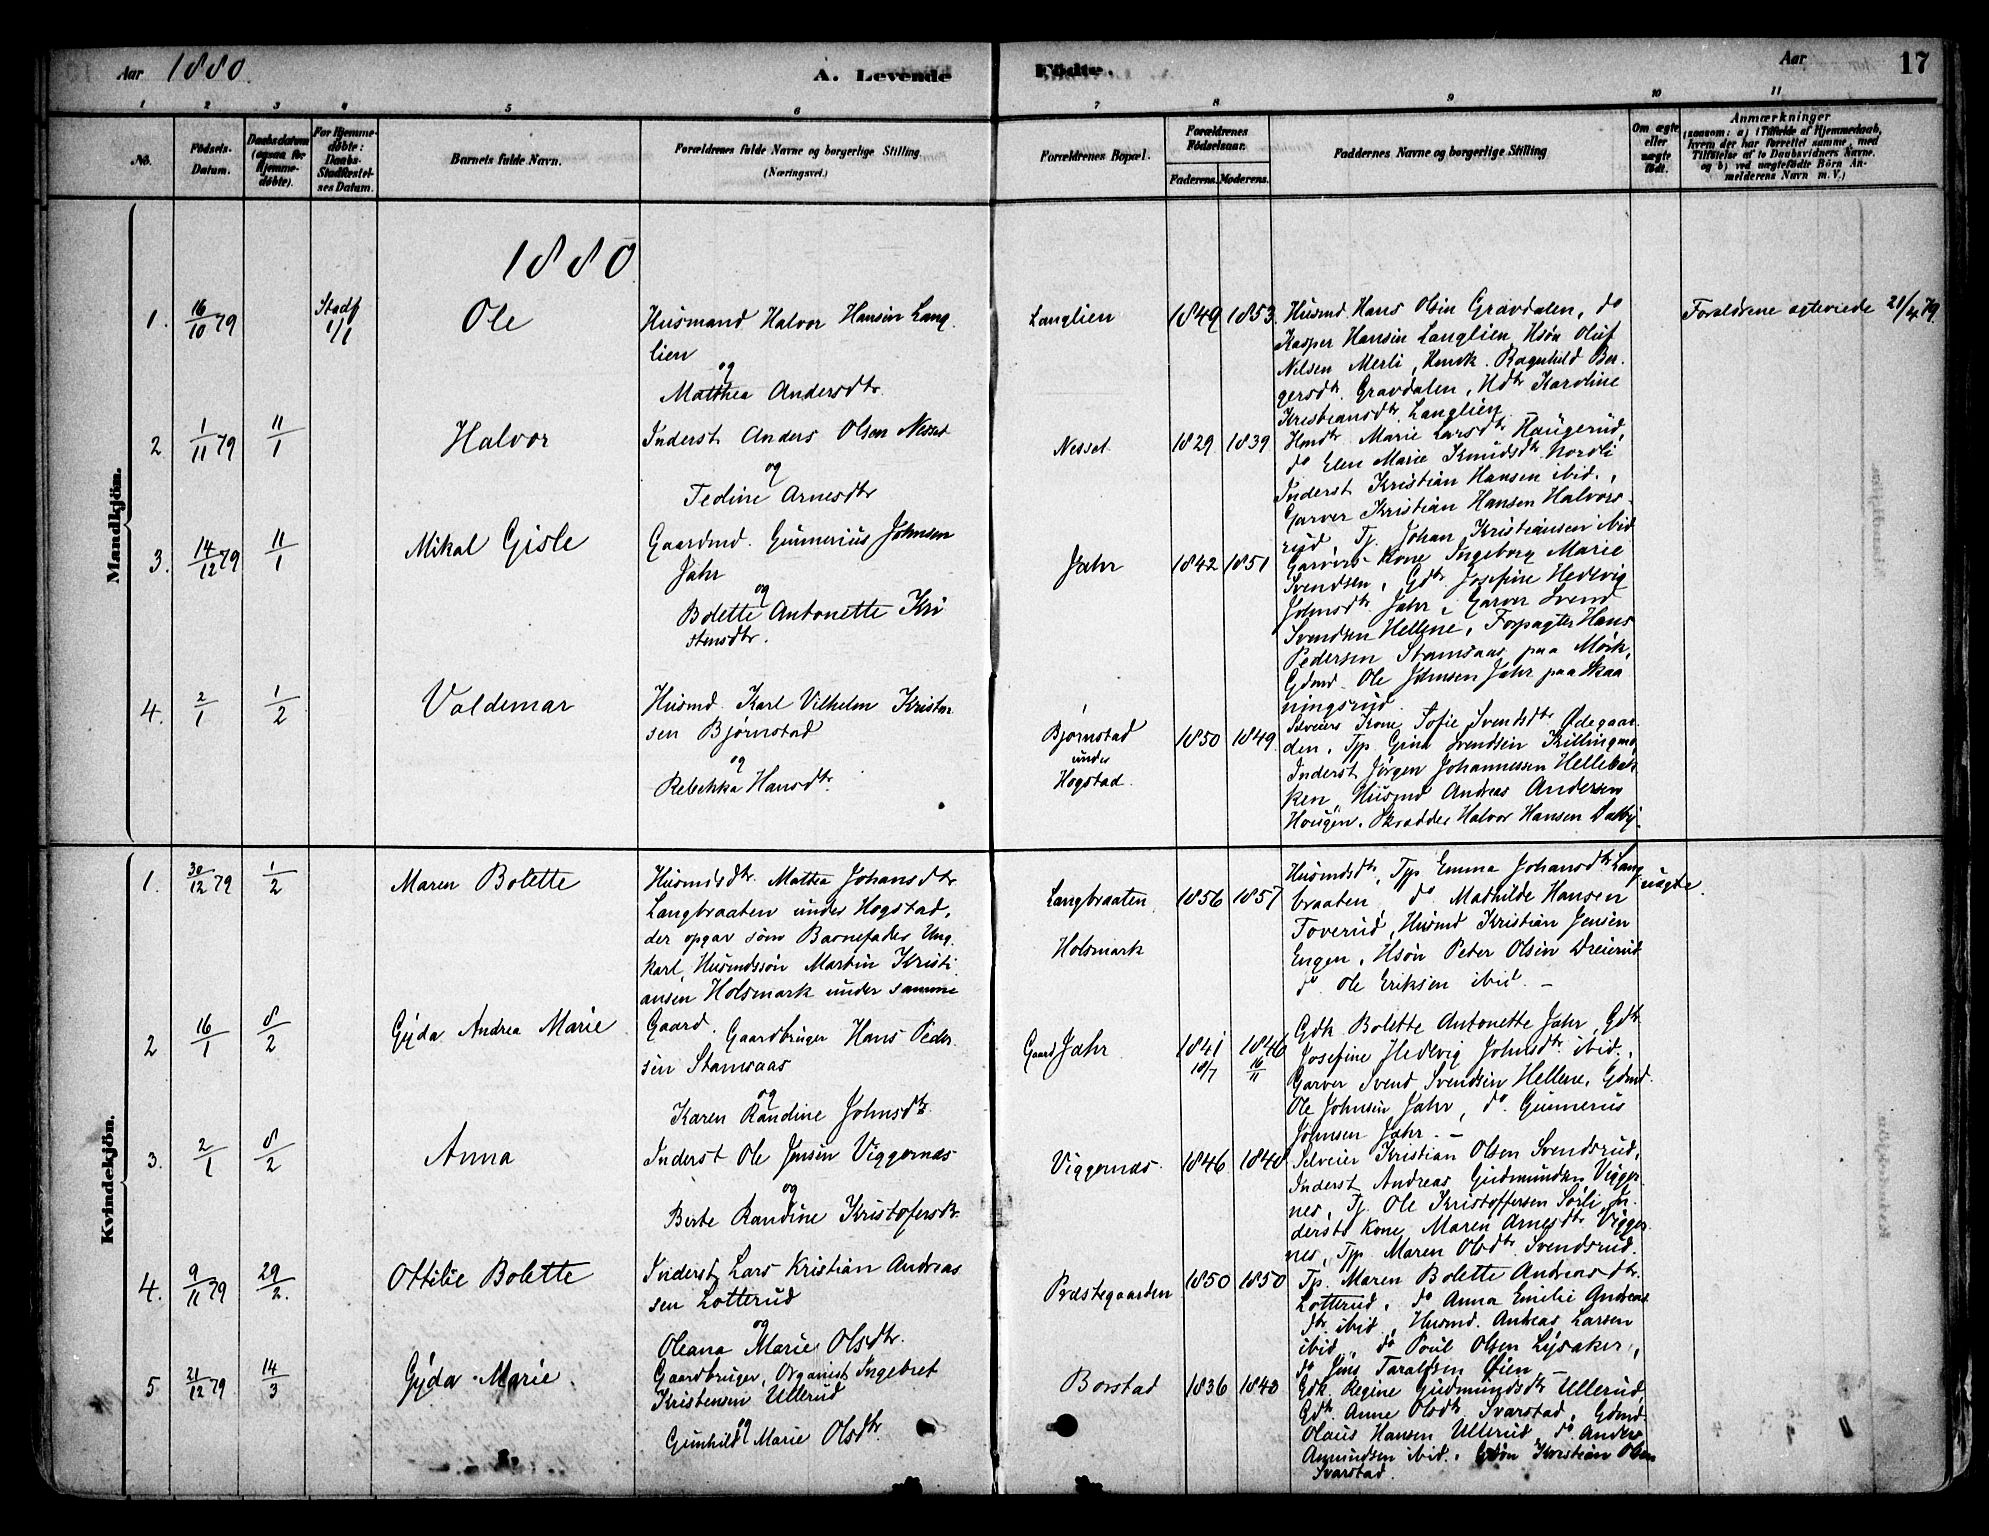 Aar 1880. A. Levende Fødte. Aar 17
1 2 3 4 5 6 7 8 9 10 11
No. Födsels-Datum. Daabsdatum (ogsaa for Hjemme-døbte). For Hjemme-døbte: Daabs-Stadfæstel-ses Datum. Barnets fulde Navn. Forældrenes fulde Navne og borgerlige Stilling (Næringsvei.) Forældrenes Bopæl. Forældrenes Födselsaar. Faderens. Moderens. Faddernes Navne og borgerlige Stilling Om ægte eller uægte født. Anmærkninger
(saasom: a) i Tilfælde af Hjemmedaab,
hvem der har forrettet samme, med
Tilføielse af to Daabsvidners Navne,
og b) ved uægtefødte Börn An-
melderens Navn m. V.)
Mandkjön.
1880
1. 16/10 79 Stadf 1/1 Ole
Husmand Halvor Hansen Lang
lien
og
Mathea Andersdtr.
Langlien 1849 1853
Husmd. Hans Olsen Gravdalen, do
Kasper Hansen Langlien, Hsøn Oluf
Nilsen Merli, Hmdk. Ragnhild Ber-
gersdtr. Gravdalen, Hdtr Karoline
Kristiansdtr. Langlien.
Forældrene ægteviede 21/4 79.
2 1/11 79 11/1 Halvor
Inderst Anders Olsen Nesset
og
Tedine Arnesdtr
Nesset 1829 1839
Hmdtr. Marie Larsdtr Haugerud,
do Elen Marie Knudsdtr. Nordli
Inderst Kristian Hansen ibid.,
Garver Kristian Hansen Halvors-
rud Tj. Johan Kristiansen ibid
3. 14/12 79 11/1 Mikal Gisle
Gaardmd. Gunnerius Johnsen
Jahr
og
Bolette Antonette Kri
stensdtr.
Jahr 1842 1851
Garvers Kone Ingeborg Marie
Svendsen, Gdtr. Josefine Hedevig
Johnsdtr. Jahr, Garver Svend
Svendsen Hellene, Forpagter Hans
Pedersen Stamsaas paa Mörk,
Gdmd. Ole Johnsen Jahr paa Skaa
ningsrud.
4. 2/1 1/2 Valdemar
Husmd. Karl Vilhelm Kristen
sen Bjørnstad
og
Rebekka Hansdtr.
Bjørnstad
under
Hogstad.
1850 1849
Selveiers Kone Sofie Svendsdtr Ødegaar
den, Tjp. Gina Svendsen Killingmo,
Inderst Jörgen Johannessen Hellebæk
ken, Husmd Andreas Andersen
Hougen. Skrædder Halvor Hansen Dalby.
Kvindekjön.
1. 30/12 79 1/2 Maren Bolette
Husmdsdtr. Mathea Johansdtr
Langbraaten under Hogstad,
der opgav som Barnefader Ung
karl, Husmdssøn Martin Kristi
ansen Holsmark under samme
Gaard.
Langbraaten
Holsmark
1856 1857
Husmdsdtr, Tjp Emma Johansdtr Lang
braaten, do Mathilde Hansen
Toverud, Husmd Kristian Jensen
Engen, Hsøn Peter Olsen Dreierud
do. Ole Eriksen ibid. —
uægte.
2 16/1 8/2 Gyda Andrea Marie
Gaardbruger Hans Peder
sen Stamsaas
og
Karen Randine Johnsdtr.
Gaard Jahr
1841 18/7 1846 16/11
Gdk Bolette Antonette Jahr, Gdtr
Josefine Hedevig Johnsdtr. ibid.,
Garver Svend Svendsen Hellene, Gdmd.
Ole Johnsen Jahr, do. Gunnerius
Johnsen Jahr. —
3. 2/1 8/2 Anna
Inderst Ole Jensen Viggernæs
og
Berte Randine Kristofersdtr.
Viggernæs. 1846 1840
Selveier Kristian Olsen Svendsrud,
Inderst Andreas Gudmundsen Vigger
nes, Tj. Ole Kristoffersen Sörli, In
dersts Kone Maren Arnesdtr Vigger
nes, Tjp. Maren Olsdtr. Svendsrud.
4. 9/11 79 29/2. Ottilie Bolette
Inderst Lars Kristian Andreas
sen Lotterud
og
Oleana Marie Olsdtr.
Præstegaarden 1850 1850
Tp. Maren Bolette Andreasdtr.
Lotterud, do Anna Emilie Andreas
dtr. ibid, Husmd. Andreas Larsen
ibid, do Poul Olsen Lysaker,
do Jens Taraldsen Øien —
5 21/12 79 14/3 Gyda Marie.
Gaardbruger, Organist Ingebret
Kristensen Ullerud
og
Gunhild Marie Olsdtr.
Borstad 1836 1840
Gdk. Regine Gudmundsdtr Ullerud,
Gdk. Anne Olsdtr Svarstad, Gdmd
Olaus Hansen Ullerud, do Anders
Amundsen ibid., Gdsøn Kristian Olsen
Svarstad.